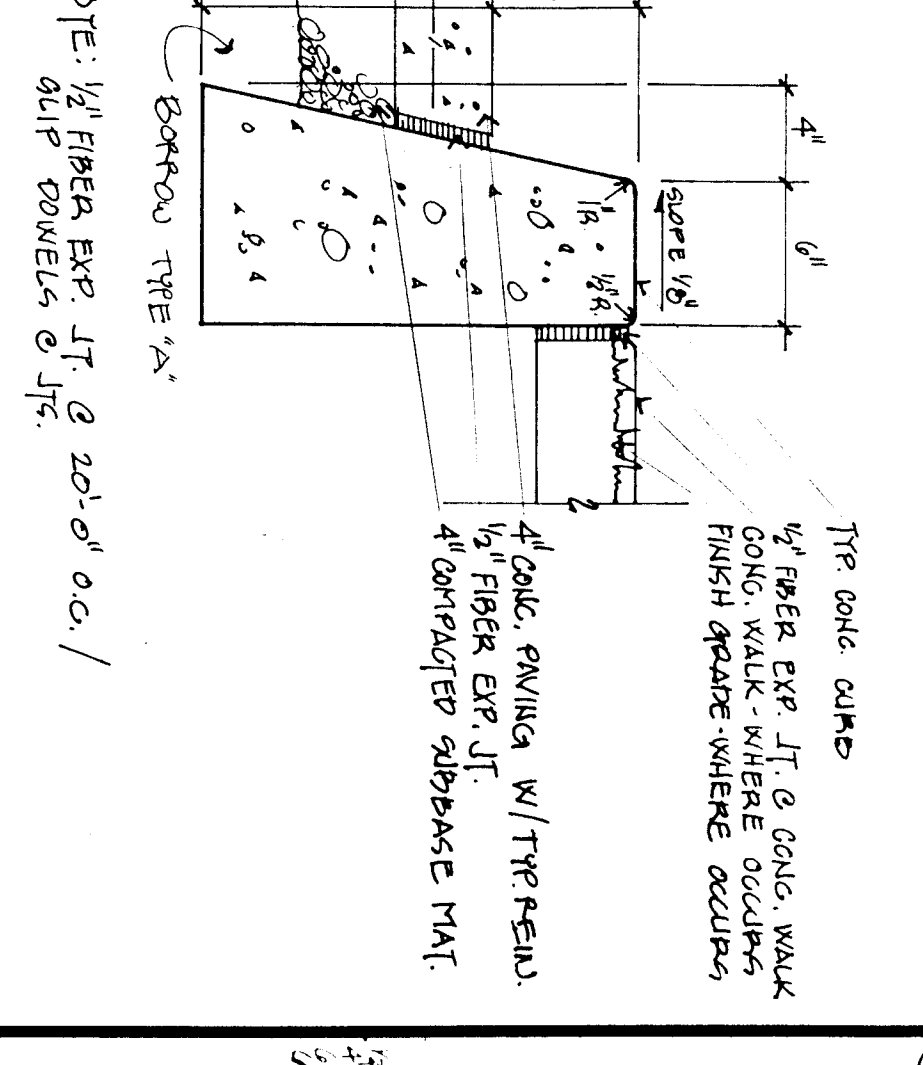 4"
6"
SLOPE 1/8"
1" R.
1/2" R.
TYP. CONC. CURB
1/2" FIBER EXP. JT. @ CONC. WALK
CONC. WALK - WHERE OCCURS
FINISH GRADE - WHERE OCCURS
4" CONC. PAVING W/ TYP. REIN.
1/2" FIBER EXP. JT.
4" COMPACTED SUBBASE MAT.
BORROW TYPE "A"
OTE: 1/2" FIBER EXP. JT. @ 20'-0" O.C. /
SLIP DOWELS @ JTS.